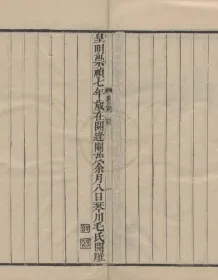 皇明崇禎七年歲在閼逢閹茂余月八日琴川毛氏開雕